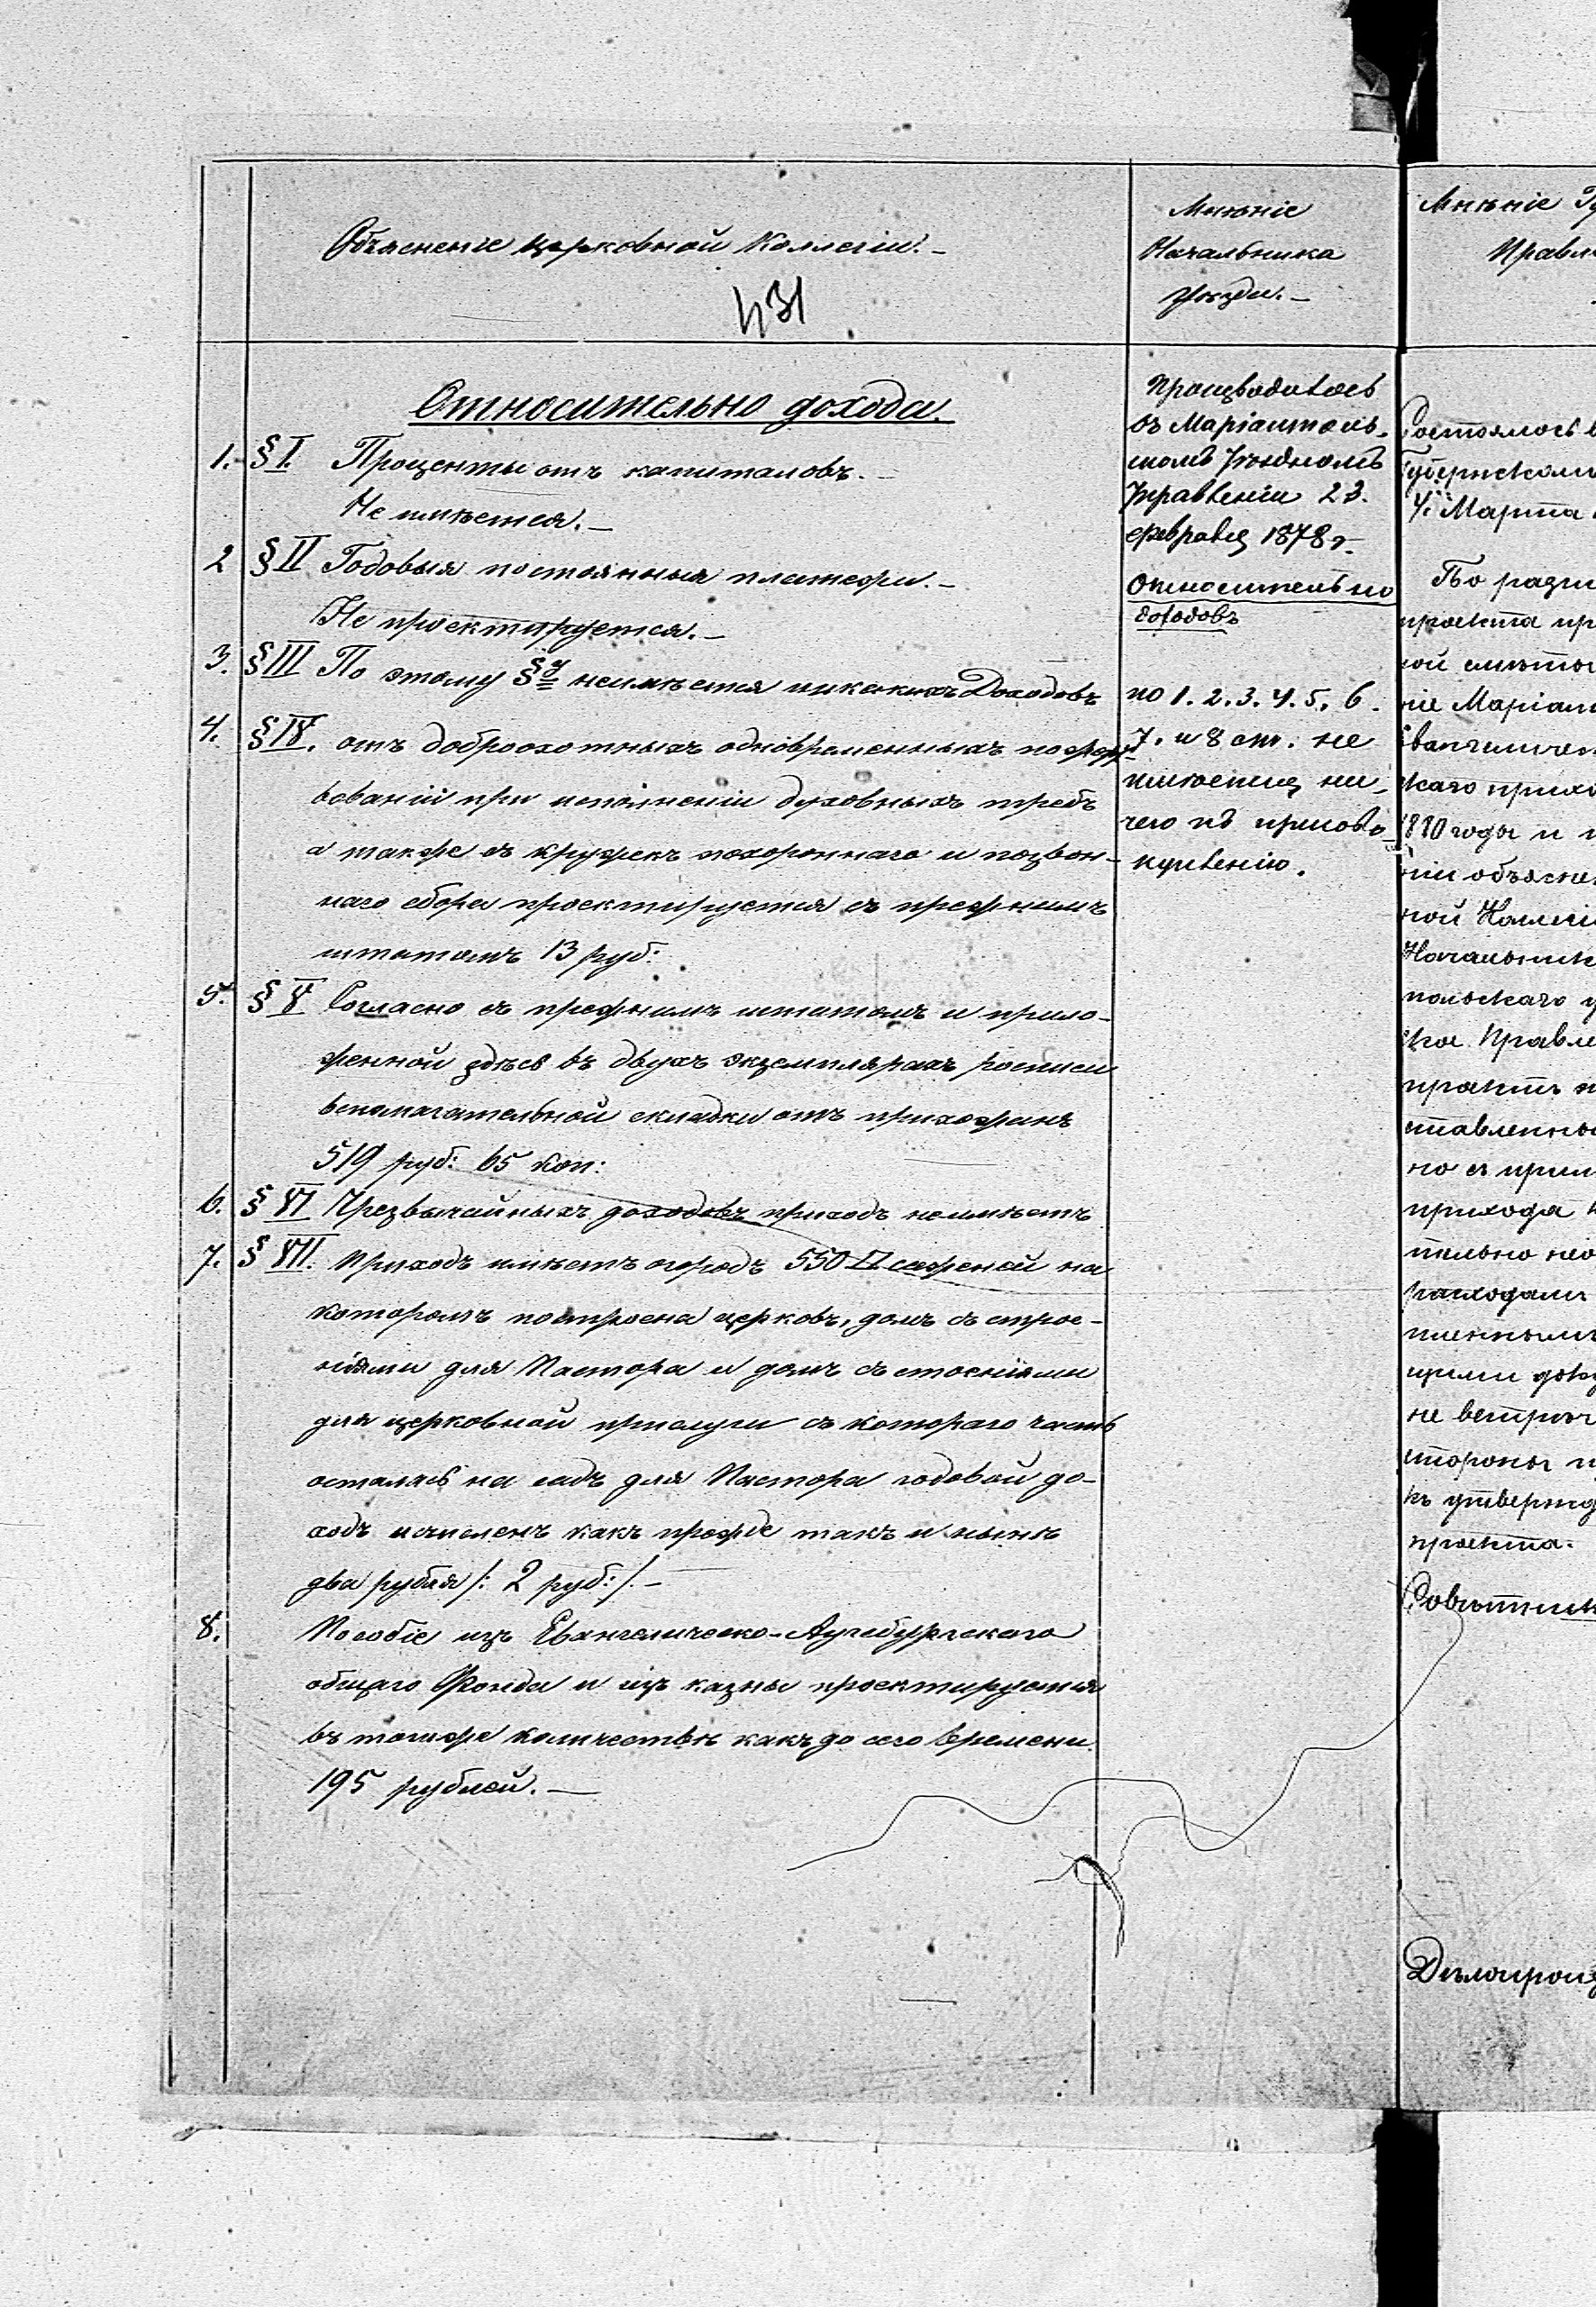 Объясненіе церковной Коллегіи.–
431
Относительно дохода.
1. § I. Проценты отъ капиталовъ.–
Не имѣется.–
2 § II Годовыя постоянныя платежи.–
Не проектируется.–
3. § III По этому §у неимѣется никакихъ Доходовъ
4. § IV. отъ доброохотныхъ одновременныхъ пожерт-
вованій при исполненіи духовныхъ требъ
а также съ кружекъ похороннаго и позвон-
наго сбора проектируется съ прежнимъ
штатомъ 13 руб:
5. § V Согласно съ прежнимъ штатомъ и прило-
женной здѣсь въ двухъ экземплярахъ росписи
вспомагательной складки отъ прихожанъ
519 руб: 65 коп:
6. § VI Чрезвычайныхъ доходовъ приходъ неимѣетъ
7. § VII. Приходъ имѣетъ огородъ 550 □ саженей на
которомъ построена церковь, домъ съ строе-
ніями для Пастора и домъ съ стоеніями
для церковной прислуги съ котораго часть
осталась на садъ для Пастора годовой до-
ходъ исчисленъ какъ прежде такъ и нынѣ
два рубля /: 2 руб: /.–
8. Пособіе изъ Евангелическо-Аугсбургскаго
общаго Фонда и изъ казны проектируется
въ томже количествѣ какъ до сего времени
195 рублей.–
Мнѣніе
Начальника
уѣзда.–
Производилось
въ Маріамполь-
скомъ Уѣздномъ
Управленіи 23.
февраля 1878 г.
Относительно
доходовъ
по 1. 2. 3. 4. 5. 6.
7. и 8 ст. не
имѣется ни-
чего къ присово-
купленію.
Мнѣніе
Состоялось
Губернскомъ
4. Марта
По
проекта
ной смѣты
1880 годы и
Начальник
но съ
прихода
расходами
не встрѣч
проекта.